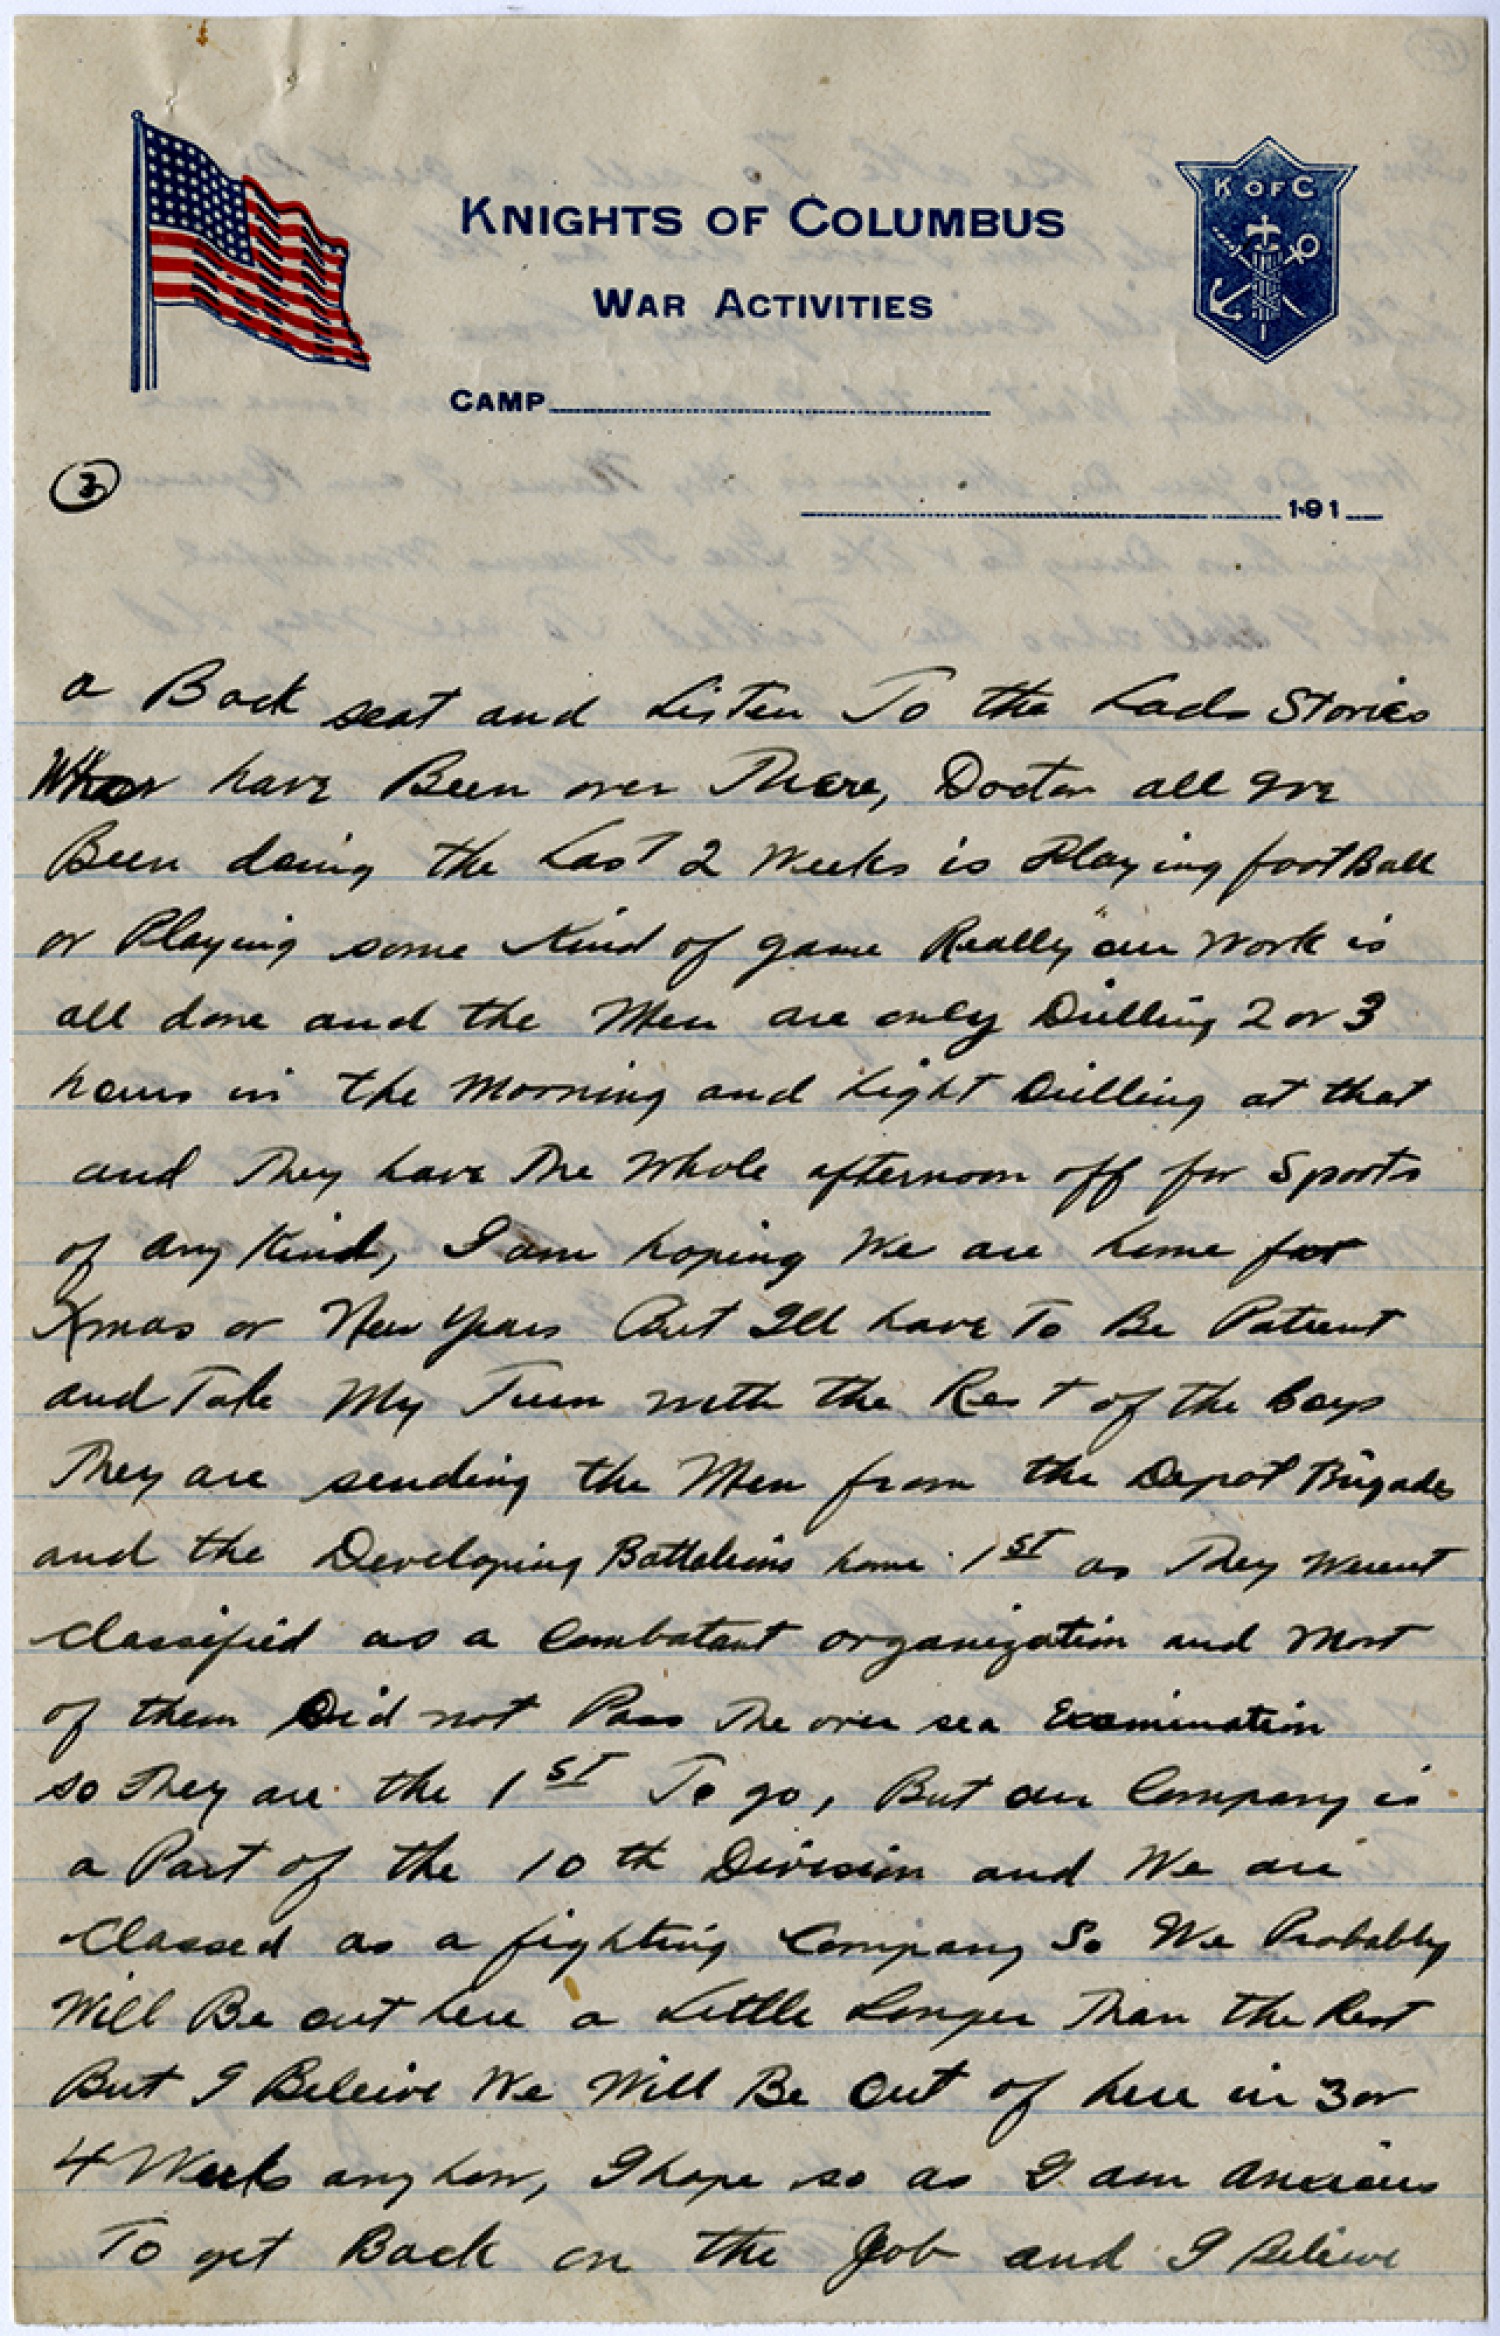 KNIGHTS OF COLUMBUS
K OF C
WAR ACTIVITIES
CAMP
3
191
a Back seat and Listen To the Lads Stories
Who have Been over There, Doctor all Ive
Been doing the Last 2 Weeks is Playing foot Ball
or Playing some Kind of game Really our Work is
all done and the Men are only Drilling 2 or 3
hours in the Morning and Light Drilling at that
and They have The Whole afternoon off for Sports
of any Kind, I am hoping We are home for
Xmas or New Years But Ill have To Be Patient
and Take My Turn with the Rest of the boys
They are sending the Men from the Depot Brigade
and the Developing Battalions home 1st as They Werent
Classified as a Combatant organization and Most
of them Did not Pass The over sea Examination
so They are the 1st To go, But our Company is
a Part of the 10th Division and We are
Classed as a fighting Company So We Probably
Will Be out here a Little Longer Than the Rest
But I Beleive We Will Be Out of here in 3 or
4 Weeks any how, I hope so as I am Anxious
To get Back on the Job and I Believe